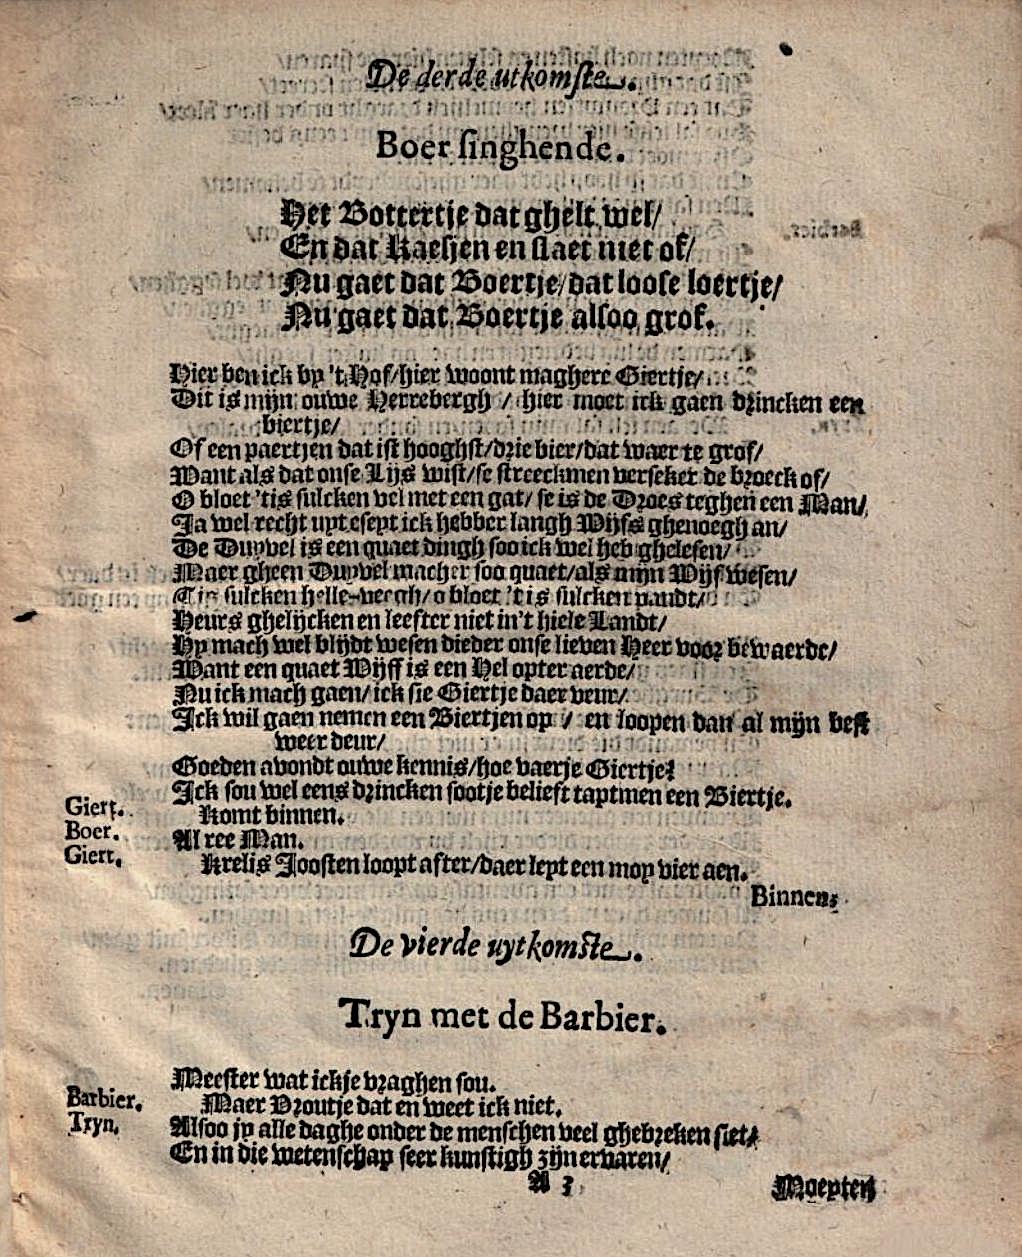 De derde utkomste.
Boer singhende.
Het Bottertje dat ghelt wel/
En dat Kaesjen en slaet niet of/
Nu gaet dat Boertje/dat loose loertje/
Nu gaet dat Boertje alsoo grof.
Hier ben ick by 't Hof/hier woont maghere Giertje/
Dit is mijn ouwe Herrebergh / hier moet ick gaen drincken een
biertje/
Of een paertjen dat ist hooghst/drie bier/dat waer te grof/
Want als dat onse Lijs wist/se streeckmen verseker de broeck of/
O bloet 'tis sulcken vel met een gat/ se is de Droes teghen een Man/
Ja wel recht uyt eseyt ick hebber langh Wijfs ghenoegh an/
De Duyvel is een quaet dingh soo ick wel heb ghelesen/
Maer gheen Duyvel macher soo quaet/als mijn Wijf wesen/
Tis sulcken helle-veegh/o bloet 't is sulcken pandt/
Heurs ghelijcken en leefter niet in't hiele Landt/
Hy mach wel blijdt wesen dieder onse lieven Heer voor bewaerde/
Want een quaet Wijff is een Hel opter aerde/
Nu ick mach gaen/ ick sie Giertje daer veur/
Ick wil gaen nemen een Biertjen op / en loopen dan al mijn best
weer deur/
Goeden avondt ouwe kennis/hoe vaerje Giertje?
Ick sou wel eens drincken sootje belieft taptmen een Biertje.
Giert. Komt binnen.
Boer. Al ree Man.
Giert. Krelis Joosten loopt after/daer leyt een moy vier aen.
Binnen.
De vierde uytkomste.
Tryn met de Barbier.
Meester wat ickje vraghen sou.
Barbier. Maer Vroutje dat en weet ick niet.
Tryn. Alsoo jy alle daghe onder de menschen veel ghebreken siet/
En in die wetenschap seer kunstigh zijn ervaren/
A 3 Moeyten